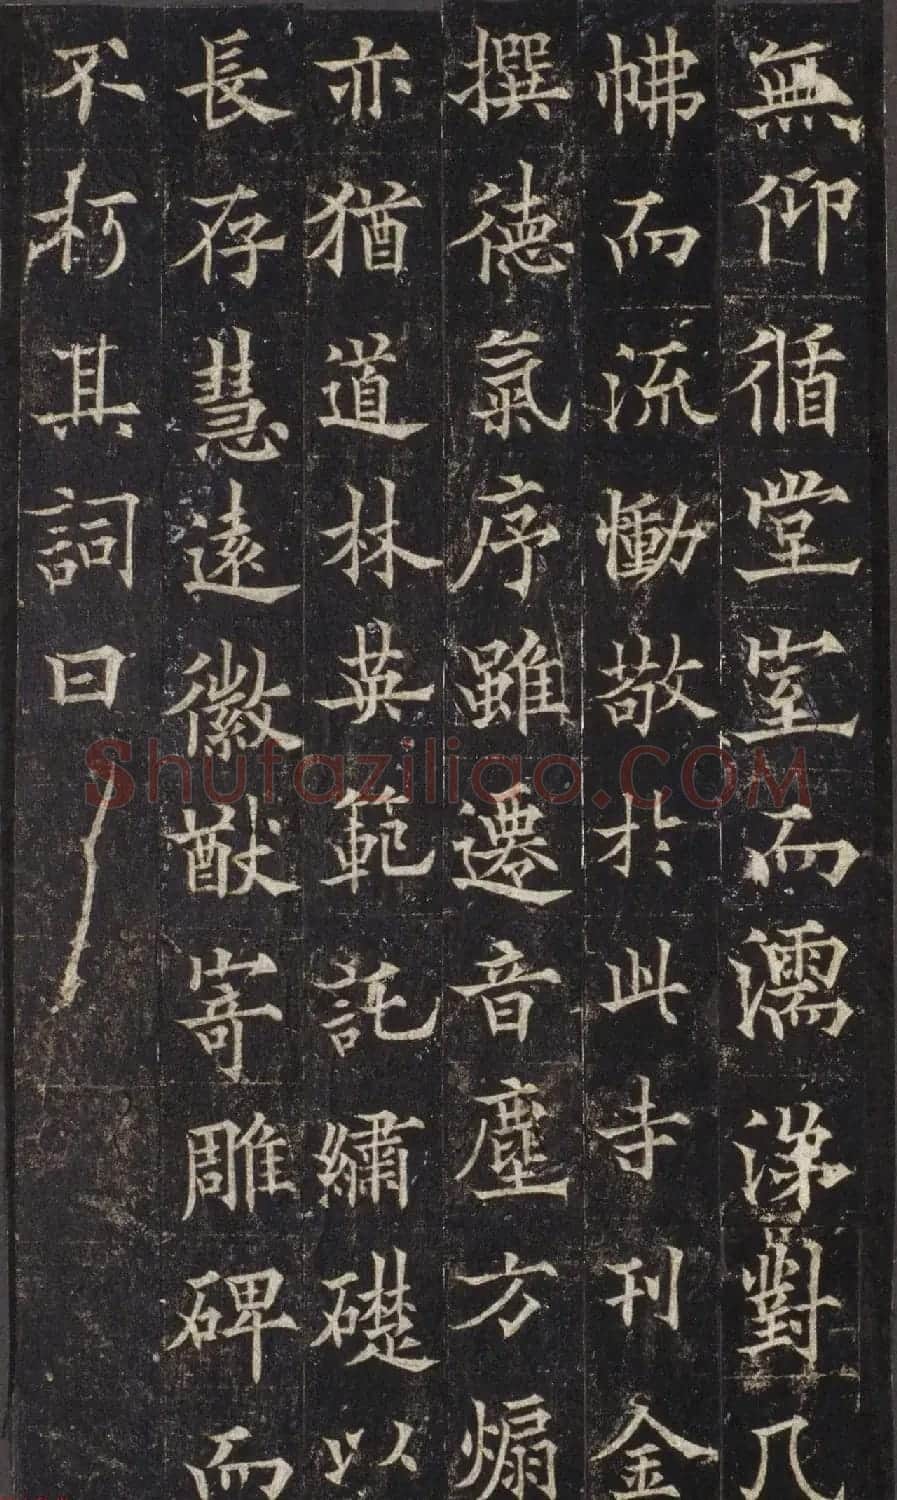 無仰循堂室而濡涕對几
怫而流慟敬於此寺刊金
撰德氣序雖遷音塵方煽
亦猶道林英範託繡礎以
長存慧遠徽猷寄雕碑而
不朽其詞曰
Shufaziliao.COM